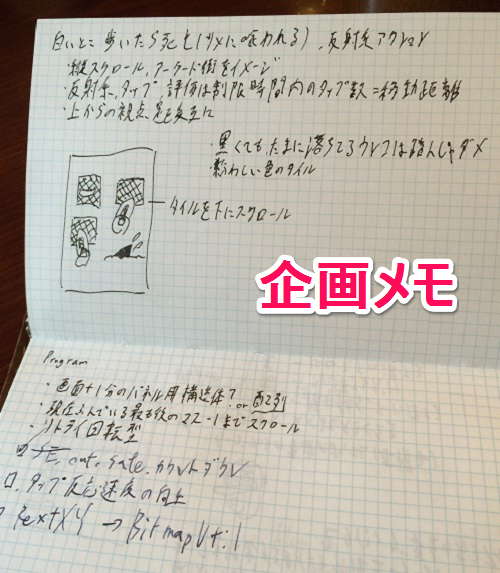 白いとこ歩いたら死ぬ(サメに喰われる)、反射系アクション
・縦スクロール、アーケード街をイメージ
・反射系、タップ 評価は制限時間内のタップ数=移動距離
・上からの視点、足を交互に
・黒くてもたまに落ちてるウンコは踏んじゃダメ
・紛わしい色のタイル
タイルを下にスクロール
企画メモ
Program
・画面+1分のパネル用構造体? or 配列
・現在ふんでいる最も後のマス-1までスクロール
・リトライ回転型
SE, out, safe, カウントダウン
ロ.タップ反応速度の向上
TextXY → BitmapUtil